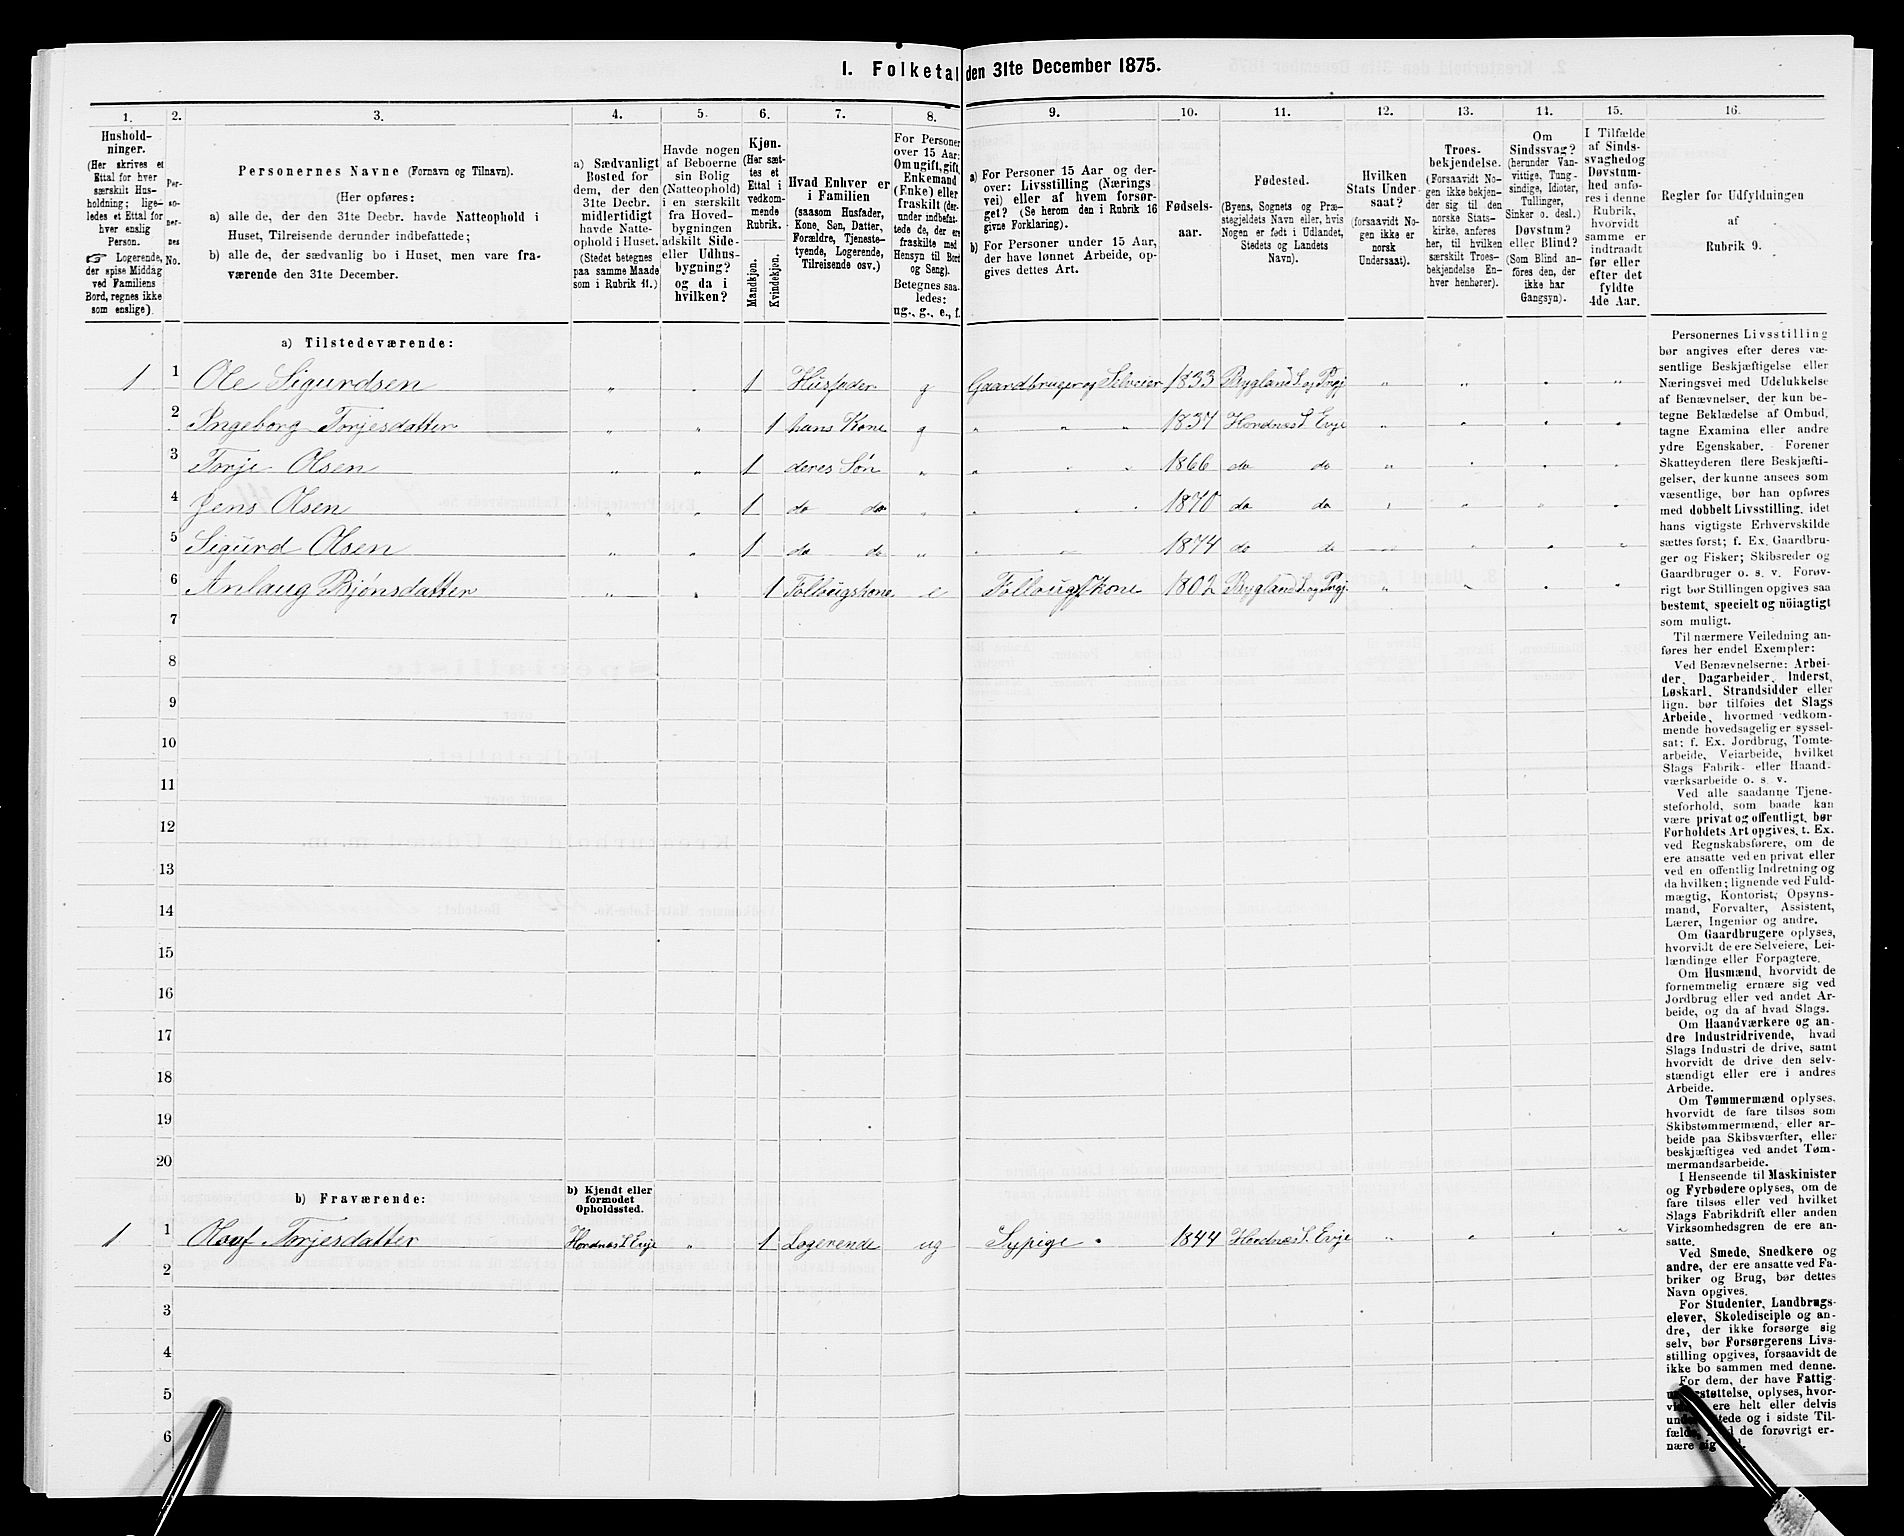 I. Folketal den 31te December 1875.
1. 2. 3. 4. 5. 6. 7. 8. 9. 10. 11. 12. 13. 14. 15. 16.
Hushold-
ninger.
(Her skrives et
Ettal for hver
særskilt Hus-
holdning; lige-
ledes et Ettal for
hver enslig
Person.
☞ Logerende,
der spise Middag
ved Familiens
Bord, regnes ikke
som enslige).
Per-
so-
ner-
nes
No.
Personernes Navne (Fornavn og Tilnavn).
(Her opføres:
a) alle de, der den 31te Decbr. havde Natteophold i
Huset, Tilreisende derunder indbefattede;
b) alle de, der sædvanlig bo i Huset, men vare fra-
værende den 31te December.
a) Sædvanligt
Bosted for
dem, der den
31te Decbr.
midlertidigt
havde Natte-
ophold i Huset.
(Stedet betegnes
paa samme Maade
som i Rubrik 11.)
Havde nogen
af Beboerne
sin Bolig
(Natteophold)
i en særskilt
fra Hoved-
bygningen
adskilt Side-
eller Udhus-
bygning?
og da i
hvilken?
Kjøn.
(Her sæt-
tes et
Ettal i
vedkom-
mende
Rubrik.
Mandkjøn.
Kvindekjøn.
Hvad Enhver er
i Familien
(saasom Husfader,
Kone, Søn, Datter,
Forældre, Tjeneste-
tyende, Logerende,
Tilreisende osv.)
For Personer
over 15 Aar:
Om ugift, gift,
Enkemand
(Enke) eller
fraskilt (der-
under indbefat-
tede de, der ere
fraskilte med
Hensyn til Bord
og Seng).
Betegnes saa-
ledes:
ug., g., e., f.
a) For Personer 15 Aar og der-
over: Livsstilling (Nærings-
vei) eller af hvem forsør-
get? (Se herom den i Rubrik 16
givne Forklaring).
b) For Personer under 15 Aar,
der have lønnet Arbeide, op-
gives dettes Art.
Fødsels-
aar.
Fødested.
(Byens, Sognets og Præ-
stegjeldets Navn eller, hvis
Nogen er født i Udlandet,
Stedets og Landets
Navn).
Hvilken
Stats Under-
saat?
(forsaavidt No-
gen ikke er
norsk
Undersaat).
Troes-
bekjendelse.
(Forsaavidt No-
gen ikke bekjen-
der sig til den
norske Stats-
kirke, anføres
her, til hvilken
særskilt Troes-
bekjendelse En-
hver henhører).
Om
Sindssvag?
(herunder Van-
vittige, Tung-
sindige, Idioter,
Tullinger,
Sinker o. desl.)
Døvstum?
eller Blind?
(Som Blind an-
føres den, der
ikke har
Gangsyn).
I Tilfælde
af Sinds-
svaghed og
Døvstum-
hed anfø-
res i denne
Rubrik,
hvorvidt
samme er
indtraadt
før eller
efter det
fyldte
4de Aar.
Regler for Udfyldningen
af
Rubrik 9.
a) Tilstedeværende:
1 1 Ole Sigurdsen " " 1 Husfader g Gaardbruger og Selveier 1833 Bygland S. og Prgj " " " "
2 Ingeborg Torjesdatter " " 1 hans Kone g " " " 1837 Hordnæs S. Evje " " " "
3 Torje Olsen " " 1 deres Søn " " " " 1866 do do " " " "
4 Jens Olsen " " 1 do do " " " " 1870 do do " " " "
5 Sigurd Olsen " " 1 do do " " " 1874 do do " " " "
6 Anlaug Bjønsdatter " " 1 Føllougskone e Føllougskone 1802 Bygland S. og Prgj. " " " "
7
8
9
10
11
12
13
14
15
16
17
18
19
20
b) Fraværende:
b) Kjendt eller
formodet
Opholdssted.
1 1 Olouf Torjesdatter Hordnæs S. Evje " 1 Logerende ug Sypige 1844 Hordnæs S. Evje " " " "
2
3
4
5
6
Personernes Livsstilling
bør angives efter deres væ-
sentlige Beskjæftigelse eller
Næringsvei med Udelukkelse
af Benævnelser, der kun be-
tegne Beklædelse af Ombud,
tagne Examina eller andre
ydre Egenskaber. Forener
Skatteyderen flere Beskjæfti-
gelser, der kunne ansees som
væsentlige, bør han opføres
med dobbelt Livsstilling, idet
hans vigtigste Erhvervskilde
sættes først; f. Ex. Gaardbru-
ger og Fisker; Skibsreder og
Gaardbruger o. s. v. Forøv-
rigt bør Stillingen opgives saa
bestemt, specielt og nöiagtigt
som muligt.
Til nærmere Veiledning an-
føres her endel Exempler:
Ved Benævnelserne: Arbei-
der, Dagarbeider, Inderst,
Løskarl, Strandsidder eller
lign. bør tilføies det Slags
Arbeide, hvormed vedkom-
mende hovedsagelig er syssel-
sat; f. Ex. Jordbrug, Tomte-
arbeide, Veiarbeide, hvilket
Slags Fabrik- eller Haand-
værksarbeide o. s. v.
Ved alle saadanne Tjene-
steforhold, som baade kan
være privat og offentligt, bør
Forholdets Art opgives, t. Ex.
ved Regnskabsførere, om de
ere ansatte ved en privat eller
ved en offentlig Indretning og
da hvilken; lignende ved Fuld-
mægtig, Kontorist, Opsyns-
mand, Forvalter, Assistent,
Lærer, Ingeniør og andre.
Om Gaardbrugere oplyses,
hvorvidt de ere Selveiere, Lei-
lændinge eller Forpagtere.
Om Husmænd, hvorvidt de
fornemmelig ernære sig ved
Jordbrug eller ved andet Ar-
beide, og da af hvad Slags.
Om Haandværkere og an-
dre Industridrivende, hvad
Slags Industri de drive, samt
hvorvidt de drive den selv-
stændigt eller ere i andres
Arbeide.
Om Tømmermænd oplyses,
hvorvidt de fare tilsøs som
Skibstømmermænd, eller ar-
beide paa Skibsværfter, eller
beskjæftiges ved andet Tøm-
mermandsarbeide.
I Henseende til Maskinister
og Fyrbødere oplyses, om de
fare tilsøs eller ved hvilket
Slags Fabrikdrift eller anden
Virksomhedsgren de ere an-
satte.
Ved Smede, Snedkere og
andre, der ere ansatte ved Fa-
briker og Brug, bør dettes
Navn opgives.
For Studenter, Landbrugs-
elever, Skoledisciple og an-
dre, der ikke forsørge sig
selv, bør Forsørgerens Livs-
stilling opgives, forsaavidt de
ikke bo sammen med denne.
For dem, der have Fattig-
understøttelse, oplyses, hvor-
ere helt eller delvis
og i sidste Til-
de forøvrigt er-
nære sig